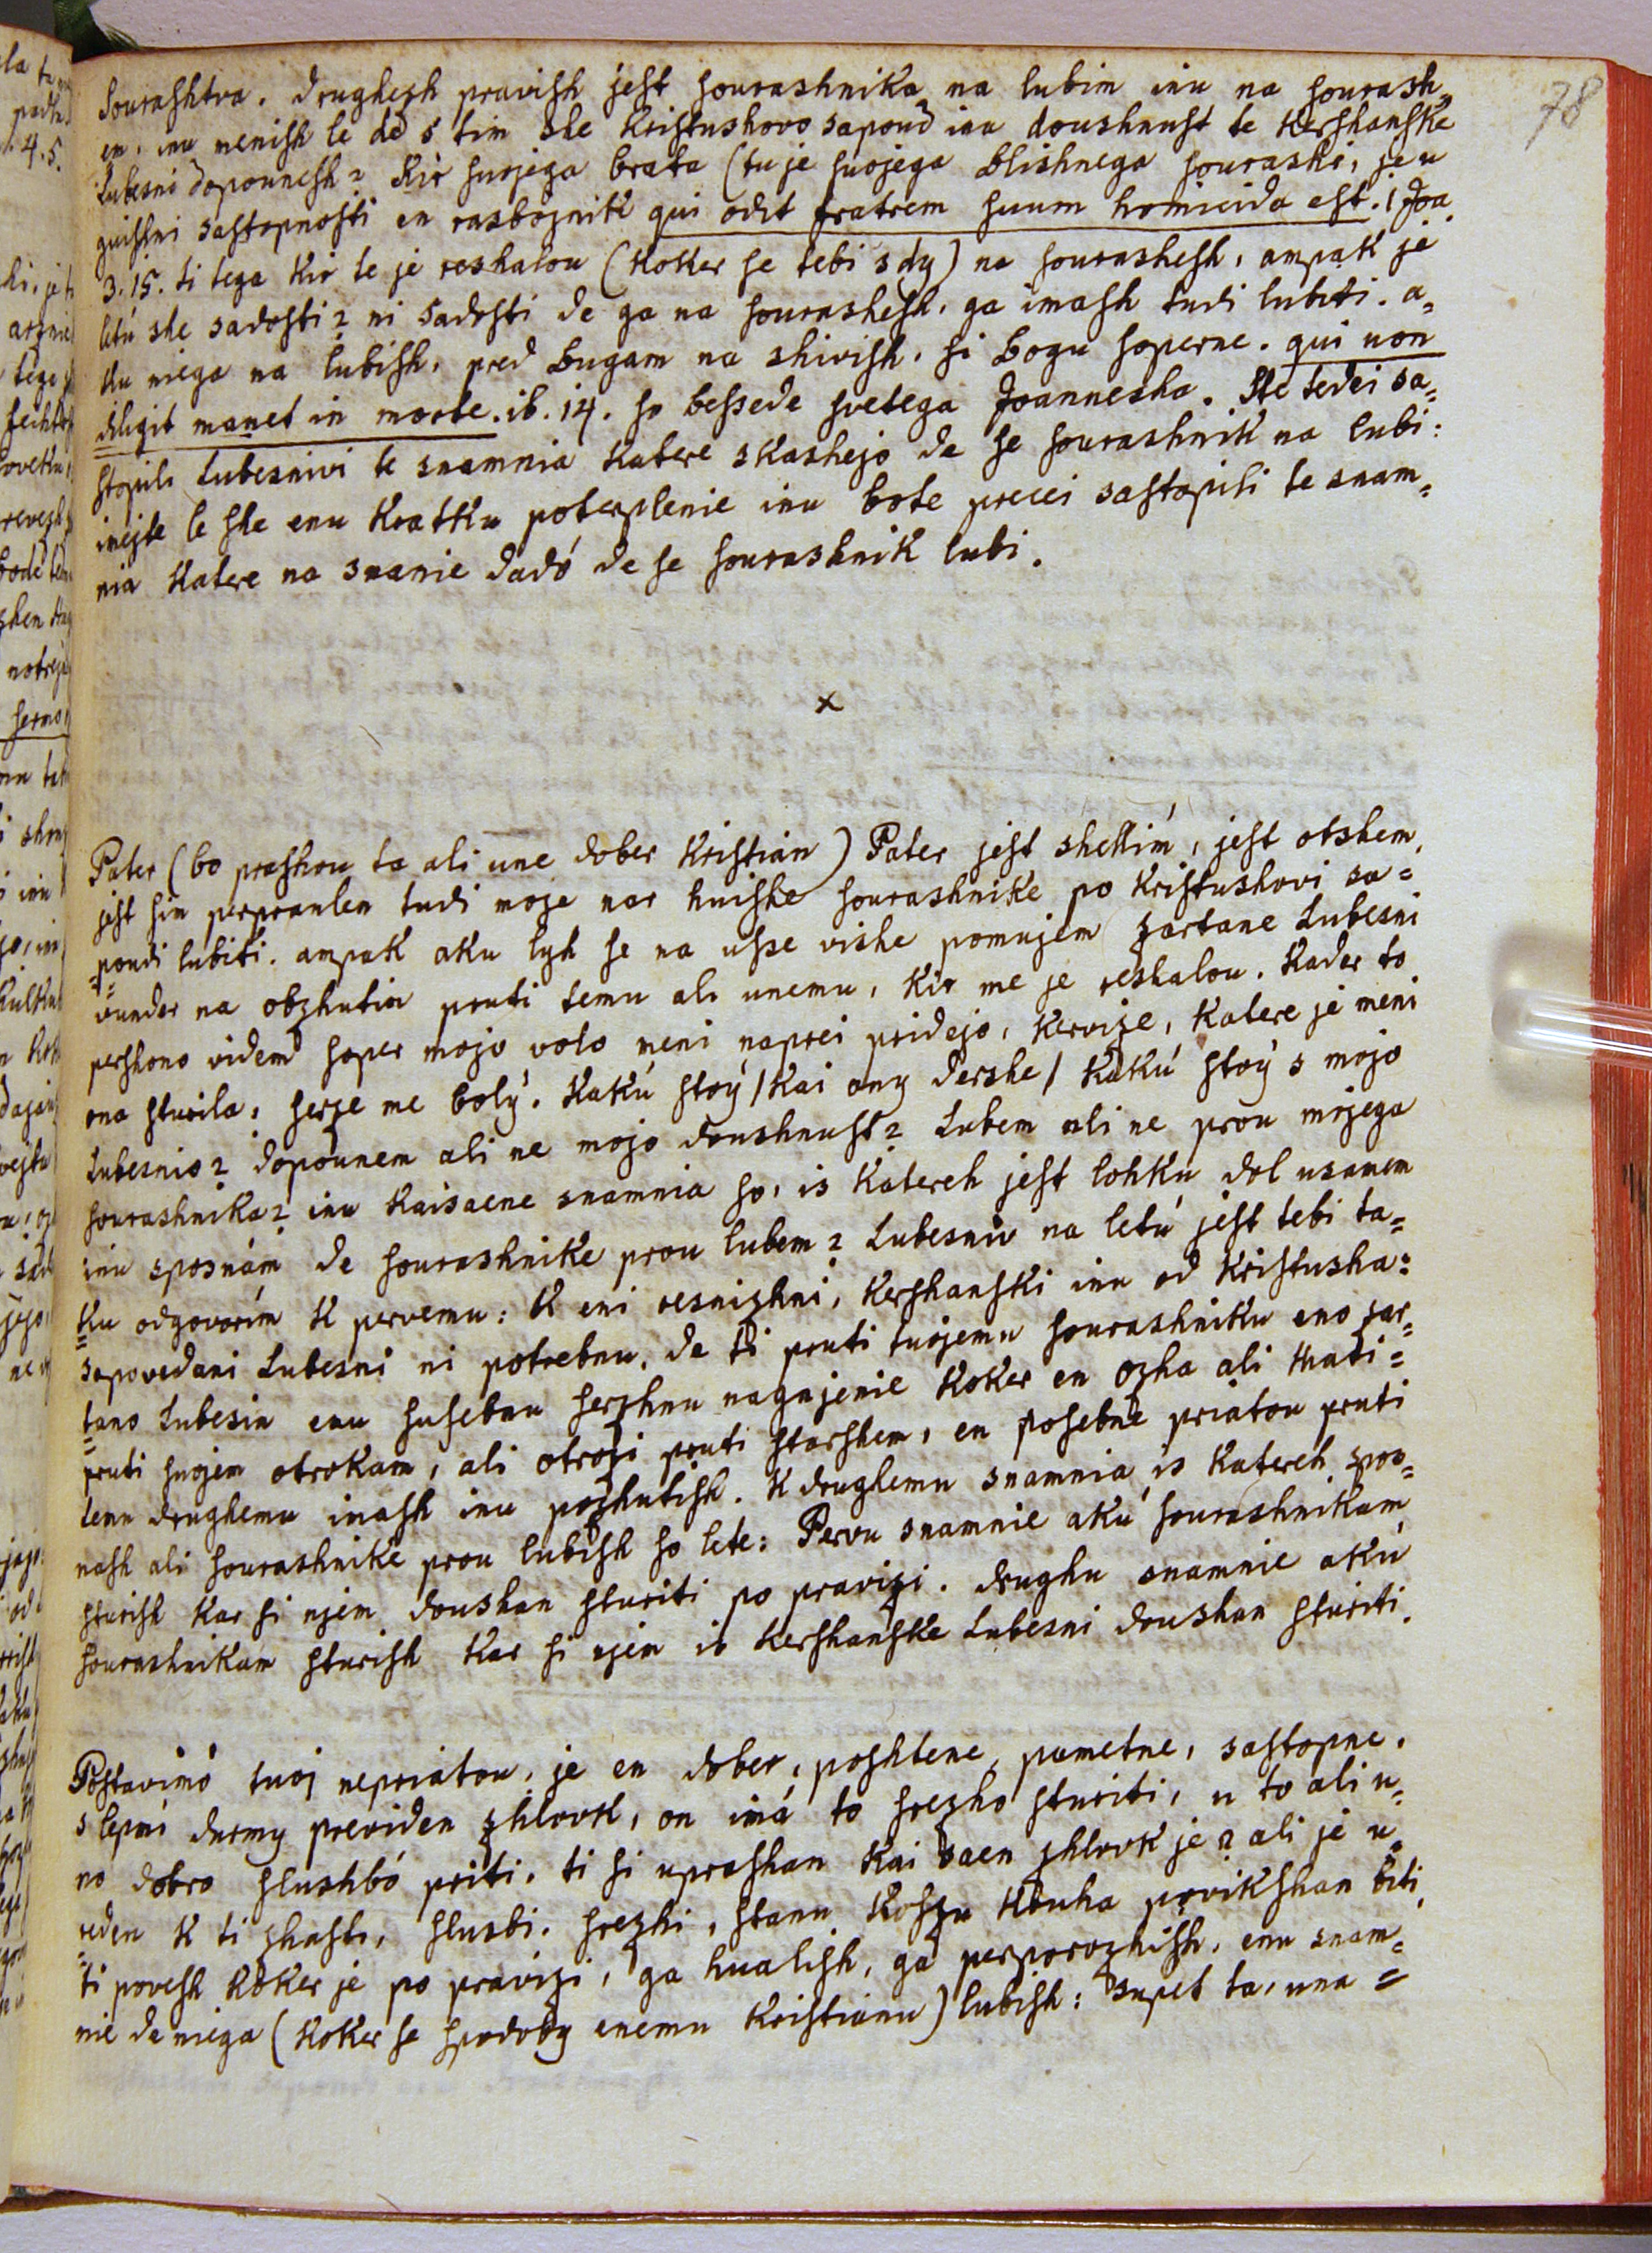 78
Sourashtva. drughezh pravish jest sourashnika na lubim inu na sourash-
em. inu menish le de s tim she Kristushovo sapoud inu doushnust te Kershanske
Lubesni dopounesh? Kir suojega brata (tu je suojega blishnega sourashi, je u
guishni sastopnosti en rasboinik qui odit fratrem suum homicida est. 1 Joa.
3. 15. ti tega kir te je reshalou (Koker se tebi sdy) na sourashesh, ampak je
letú she sadosti? ni sadosti de ga na sourashesh. ga imash tudi lubiti. a-
ku niega na lubish, pred Bugam na shivish. si Bogu soperne. qui non
diligit manet in morte. ib. 14. so besede svetega Joannesha. Ste tedei sa-
stopili Lubesnivi te snamnia katere skashejo de se sourashnik na lubi:
imejte le she enu Kratku poterplenie inu bote precei sastopili te snam-
nia Katere na snanie dadó de se sourashnik lubi.
x
Pater (bo prashou ta ali une dober Kristian) Pater jest shellim, jest otshem,
jest sim perpraulen tudi moje nar huishe sourashnike po Kristushovi sa=
poudi lubiti. ampak aku lyh se na use vishe pomujem zartane Lubesni
vunder na obzhutim pruti temu ali unemu, Kir me je reshalou. Kader to
pershono videm soper mojo volo meni naprei pridejo, Kervize, Katere je meni
ona sturila, serze me bolý. Kakú stoý /Kai ony dershe/ Kakú stoý s mojo
Lubesnio? dopounem ali ne mojo doushnust? Lubem ali ne prou mojega
sourashnika? inu Kaisaene snamnia so, is Katereh jest lohku dol usamem
inu sposnám de sourashnike prou lubem? Lubesniv na letú jest tebi ta=
ku odgovorim K pervemu: K eni resnizhni, Kershanski inu od Kristusha
sapovedani Lubesni ni potrebnu, de ti pruti tuojemu sourashniku eno zar=
tano Lubesin enu suSebnu serzhnu nagnjenie Koker en ozha ali mati
pruti suojem otrokam, ali otrozi pruti starshem, en posebne priatou pruti
temu drughemu imash inu pozhutish. K drughemu snamnia is Katereh spos=
nash ali sourashnike prou lubish so lete: Pervu snamnie akú sourashnikam
sturish Kar si njem doushan sturiti po pravizi. drughu snamnie akú
sourashnikam sturish Kar si njem is Kershanske Lubesni doushan sturiti.
Postavimo tuoj nepriatou, je en dober, poshtene, pametne, sastopne.
s lepmi durmy previden zhlovk, on imá to srezho sturiti, u to ali u-
no dobro slushbó priti. ti si uprashan Kai saen zhlovk je? ali je u-
reden K ti zhasti, slusbi. srezhi, stanu povikshan biti.
ti povesh Koker je po pravizi, ga hualish, ga perporozhish. enu snam=
nie de niega (Koker se spodoby enemu Kristianu) lubish: supet ta, una =